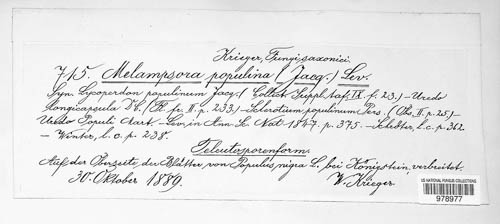 Krieger, Fungi saxonici.
715. Melampsora populina (Jacq.) Lev.
Syn. Lycoperdon populinum Jacq. (Collect. Suppl. taf. IX. f. 2.3.) – Uredo
longicapsula DC. (Fl. fr. II. p. 233.) – Sclerotium populinum Pers. (Obs. II. p. 25.) –
Uredo Populi Mart. – Lev. in Ann. Sc. Nat. 1847. p. 375. – Schröter, l. c. p. 362.
– Winter, l. c. p. 238.
Teleutosporenform.
Auf der Oberseite der Blätter von Populus nigra L. bei Königstein, verbreitet.
30. Oktober 1889.
W. Krieger.
US NATIONAL FUNGUS COLLECTIONS
978977